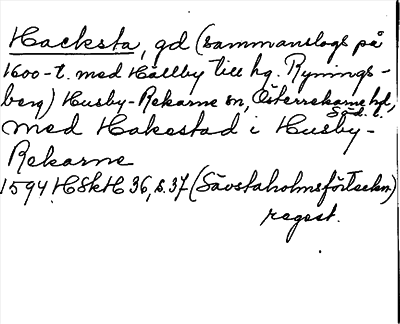 Hacksta, gd (sammanslogs på
1600-t. med Hällby till hg. Rynings-
berg) Husby-Rekarne sn, Österrekarne hd,
Söd. l.
med Hakestad i Husby-
Rekarne
1594 HSkH 36, s. 37 (Sävstaholmsförteckn)
regest.